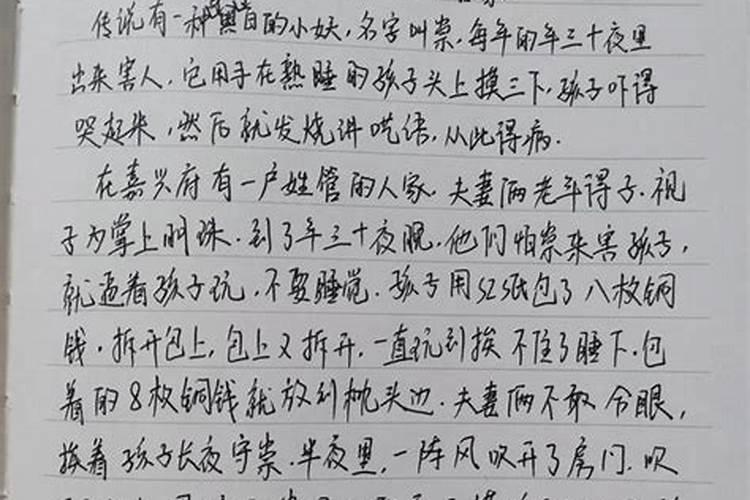 传说有一种黑白的小妖,名字叫祟,每年的年三十夜里
出来害人,它用手在熟睡的孩子头上摸三下,孩子吓得
哭起来,然后就发烧讲呓语,从此得病.
在嘉兴府有一户姓管的人家,夫妻俩老年得子.视
子为掌上明珠.到了年三十夜晚,他们怕祟来害孩子,
就逼着孩子玩,不要睡觉.孩子用红纸包了八枚铜
钱.拆开包上,包上又拆开,一直玩到挨不住了睡下.包
着的8枚铜钱就放到枕头边.夫妻俩不敢合眼,
挨着孩子长夜守祟.半夜里,一阵风吹开了房门.吹